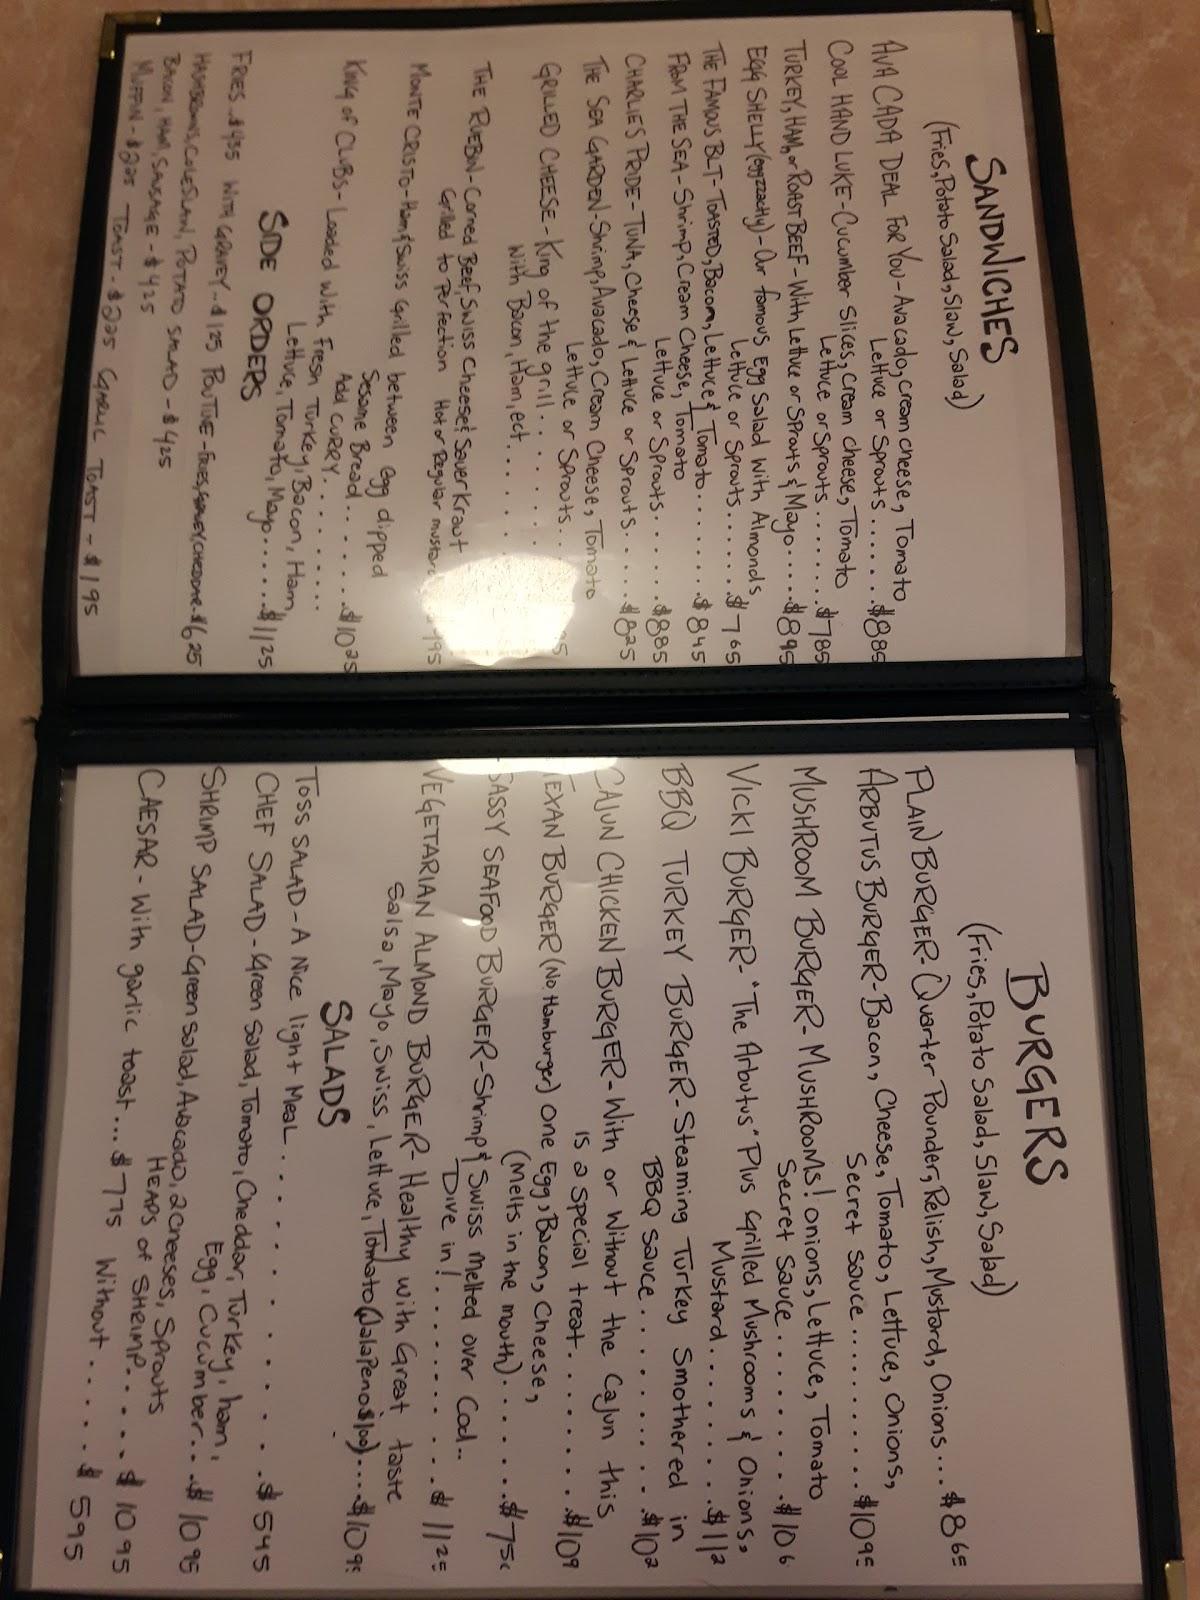 SANDWICHES
(Fries, Potato Salad, Slaw, Salad)
AVA CADA DEAL FOR YOU - Avacado, cream cheese, Tomato
Lettuce or Sprouts.......$8.85
COOL HAND LUKE - Cucumber Slices, Cream cheese, Tomato
Lettuce or Sprouts.......$7.85
TURKEY, HAM, or ROAST BEEF - With Lettuce or Sprouts & Mayo....$8.95
EGG SHELLY (eggzzactly) - Our famous Egg Salad With Almonds
Lettuce or Sprouts......$7.65
THE FAMOUS BLT - TOASTED, Bacon, Lettuce & Tomato........$8.45
FROM THE SEA - Shrimp, Cream Cheese, Tomato
Lettuce or Sprouts......$8.85
CHARLIES PRIDE - TUNA, Cheese & Lettuce or Sprouts.....$8.25
THE SEA GARDEN - Shrimp, Avacado, Cream Cheese, Tomato
Lettuce or Sprouts...
GRILLED CHEESE - King of the grill........
With Bacon, Ham, ect......
THE RUEBIN - Corned Beef, Swiss Cheese & Sauer Kraut
Grilled to Perfection Hot or Regular mustard
MONTE CRISTO - Ham & Swiss Grilled between Egg dipped
Sesame Bread........$10.25
Add CURRY..........
KING OF CLUBS - Loaded with Fresh Turkey, Bacon, Ham
Lettuce, Tomato, Mayo......$11.25
SIDE ORDERS
FRIES..$4.35 WITH GRAVEY - $1.25 POUTINE - FRIES, GRAVEY, CHEDDAR - $6.25
HASHBROWNS, COLESLAW, POTATO SALAD - $4.25
BACON, HAM, SAUSAGE - $4.25
MUFFIN - $2.25 TOAST - $2.25 GARLIC TOAST - $1.95
BURGERS
(Fries, Potato Salad, Slaw, Salad)
PLAIN BURGER - Quarter Pounder, Relish, Mustard, Onions...$8.65
ARBUTUS BURGER - Bacon, Cheese, Tomato, Lettuce, Onions,
Secret sauce.........$10.95
MUSHROOM BURGER - MUSHROOMS! onions, Lettuce, Tomato
Secret Sauce........$10.6
VICKI BURGER - "The Arbutus" Plus Grilled Mushrooms & Onions,
Mustard........$11.2
BBQ TURKEY BURGER - Steaming Turkey Smothered in
BBQ sauce..........$10.2
CAJUN CHICKEN BURGER - With or Without the Cajun this
is a special treat........$10.9
TEXAN BURGER (No. Hamburger) One Egg, Bacon, Cheese,
(Melts in the mouth).......$7.5
SASSY SEAFOOD BURGER - Shrimp & Swiss melted over Cod..
Dive in!..........$11.25
VEGETARIAN ALMOND BURGER - Healthy with Great taste
Salsa, Mayo, Swiss, Lettuce, Tomato (JalaPeno $1.00)...$10.95
SALADS
TOSS SALAD - A Nice light MEAL..........$5.45
CHEF SALAD - Green Salad, Tomato, Cheddar, Turkey, ham,
Egg, Cucumber...$10.95
SHRIMP SALAD - Green salad, Avacado, 2 cheeses, Sprouts
HEAPS OF SHRIMP.....$10.95
CAESAR - With garlic toast...$7.75 Without.....$5.95